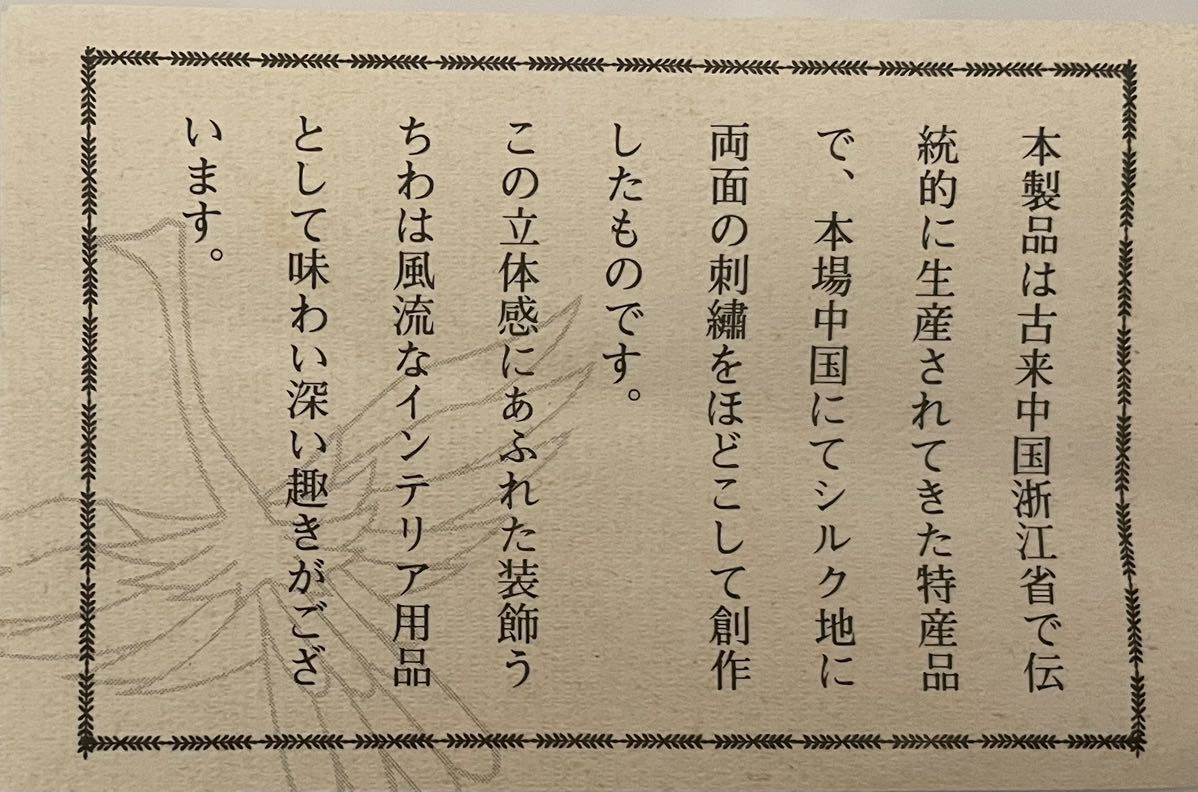 本製品は古来中国浙江省で伝
統的に生産されてきた特産品
で、本場中国にてシルク地に
両面の刺繡をほどこして創作
したものです。
この立体感にあふれた装飾う
ちわは風流なインテリア用品
として味わい深い趣きがござ
います。